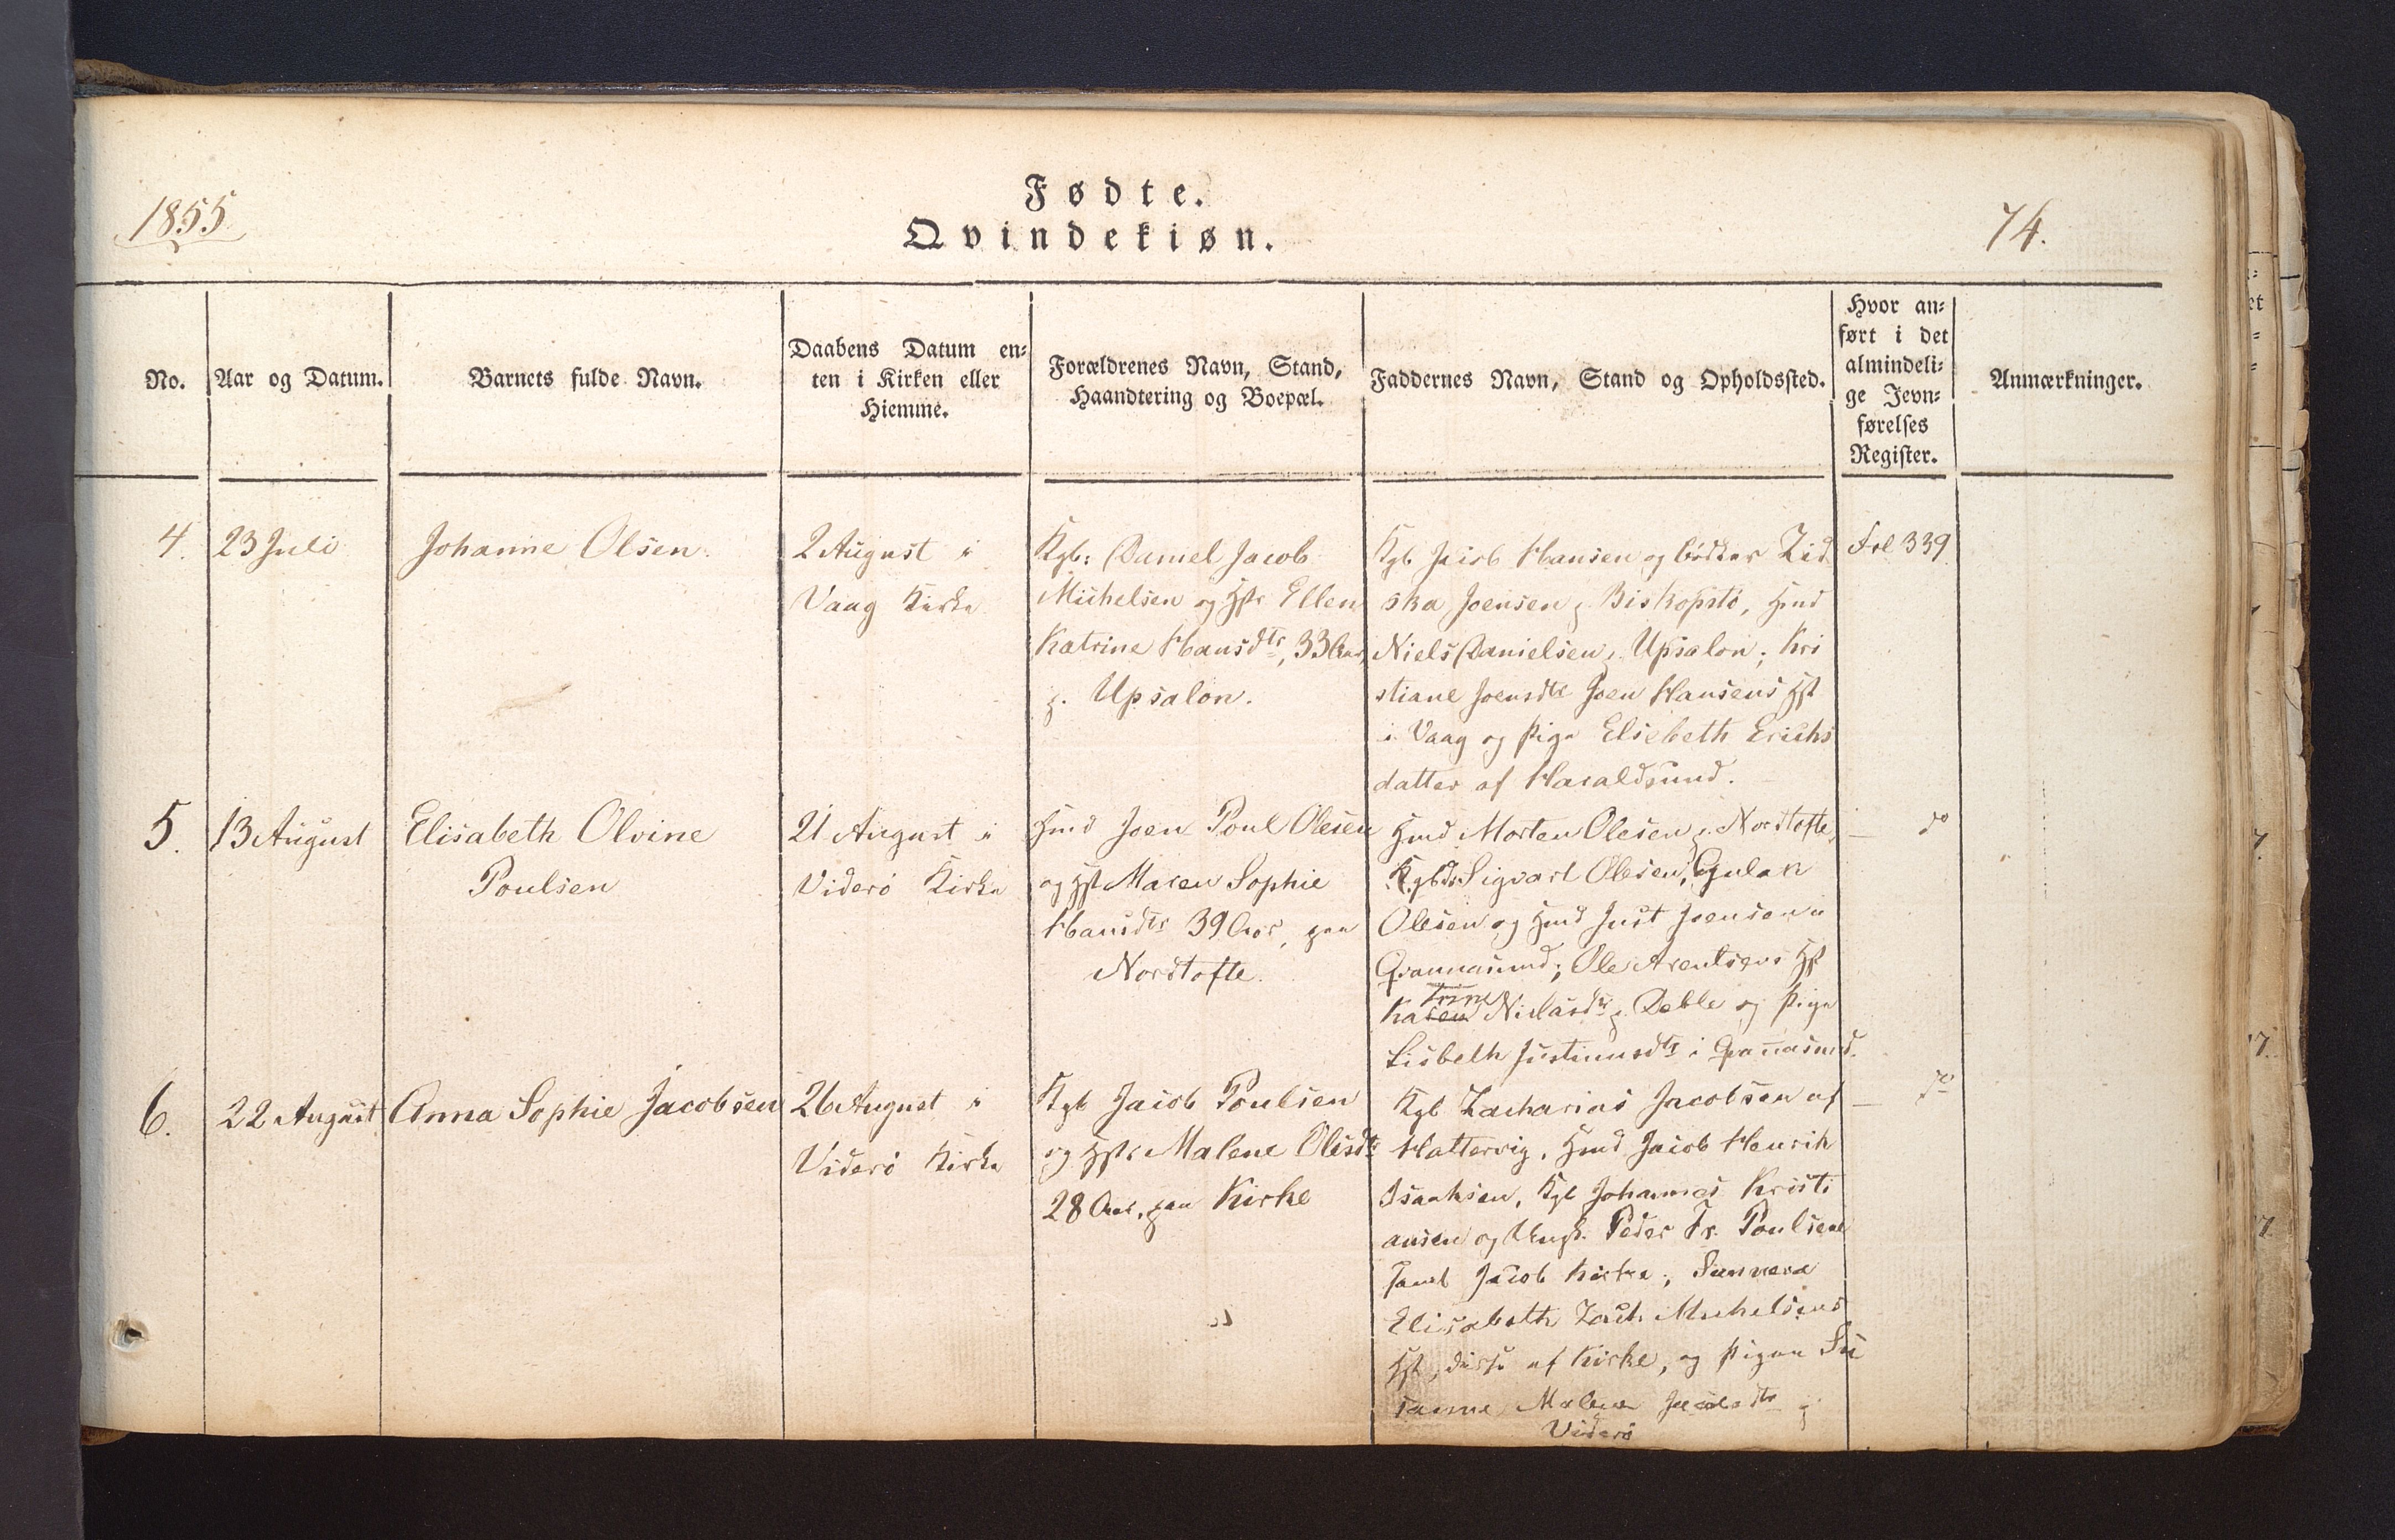 1855
Fødte.
Qvindekiøn.
74.
No.
Aar og Datum.
Barnets fulde Navn.
Daabens Datum en-
ten i Kirken eller
Hiemme.
Forældrenes Navn, Stand,
Haandtering og Boepæl.
Faddernes Navn, Stand og Opholdssted.
Hvor an-
ført i det
almindeli-
ge Jevn-
førelses
Register.
Anmærkninger.
4.
23 Juli
Johanne Olsen.
2 August i
Vaag Kirke
Kgb: Daniel Jacob
Michelsen og Hstr Ellen
Katrine Hansdtr, 33 Aar,
p. Upsalon.
Kgb Jacob Hansen og
ska Joensen p. Biskopstö, Hmd
Niels Danielsen p. Upsalon; Kri
stiane Joensdtr Joen Hansens Hst
i Vaag og Pige Elsebeth Erichs
datter af Haraldsund.
Fol 339
5.
13 August
Elisabeth Olvine
Poulsen
21 August i
Viderö Kirke
Hmd Joen Poul Olesen
og Hst Maren Sophie
Hansdtr 39 Aar, paa
Nordtofte.
Hmd Morten Olesen p. Nordtofte,
Sigvart Olesen,
Olesen og Hmd Just Joensen i
Qvannasund; Ole Arentsens Hst
trine
Karen Niclasdtr p. Deble og Pige
Lisbeth Justinusdtr i Qvanasund.
— do
6.
22 August
Anna Sophie Jacobsen
26 August i
Viderö Kirke
Kgb Jacob Poulsen
og Hstr Malene Olesdtr
28 Aar, paa Kirke
Kgb Zacharias Jacobsen af
Hattervig, Hmd Jacob Henrik
Isaaksen, Kgb Johannes Kristi
ansen og Ungk. Peder Fr. Poulsen
samt Jacob Sunneva
Elisabeth Zach Michelsens
Hst, af Kirke, og Pigen Su
sanne Malene Jacobsdtr p.
Viderö
— do